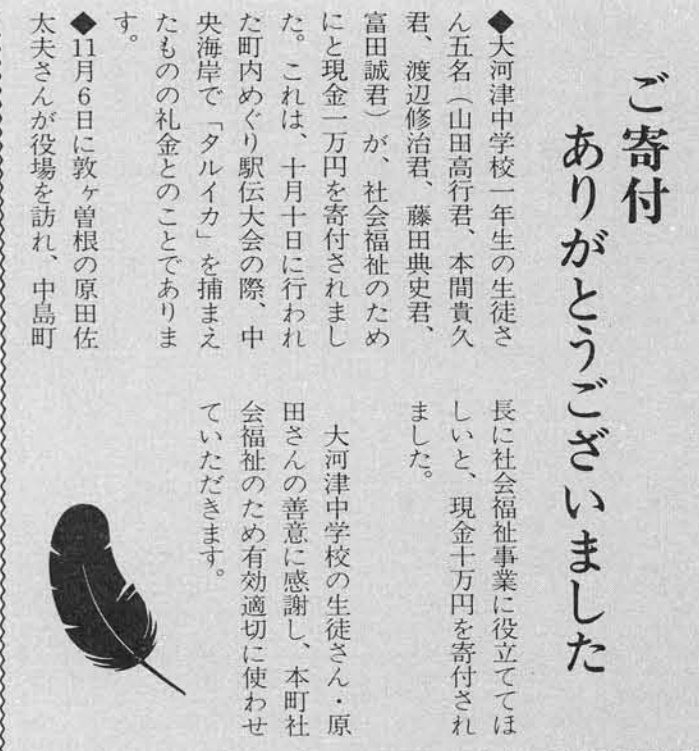 ご寄付
ありがとうございました
◆大河津中学校一年生の生徒さ
ん五名（山田高行君、本間貴久
君、渡辺修治君、藤田典史君、
富田誠君）が、社会福祉のため
にと現金一万円を寄付されまし
た。これは、十月十日に行われ
た町内めぐり駅伝大会の際、中
央海岸で「タルイカ」を捕まえ
たものの礼金とのことでありま
す。
◆11月6日に敦ヶ曽根の原田佐
太夫さんが役場を訪れ、中島町
長に社会福祉事業に役立ててほ
しいと、現金十万円を寄付され
ました。
大河津中学校の生徒さん・原
田さんの善意に感謝し、本町社
会福祉のため有効適切に使わせ
ていただきます。